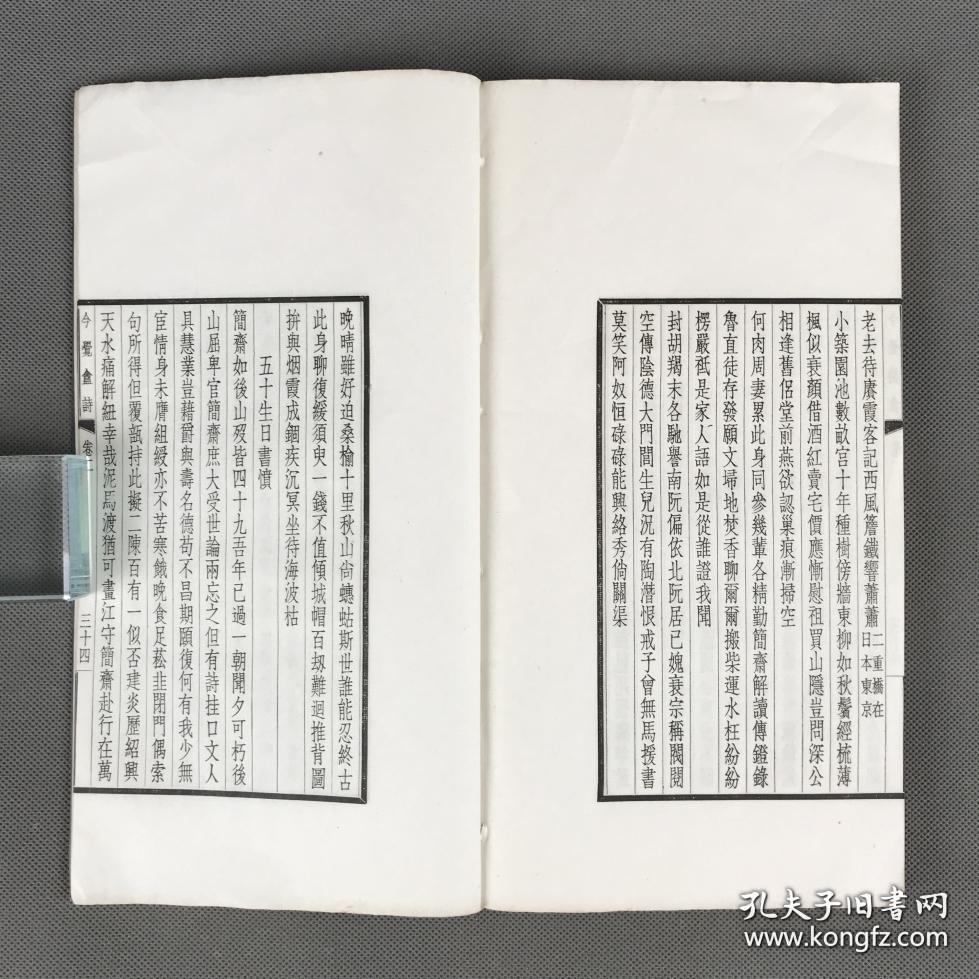 老去待賡霞客記西風簷鐵響蕭蕭二重橋在日本東京
小築園池數畝宮十年種樹傍牆東柳如秋鬢經梳薄
楓似衰顏借酒紅賣宅價應慚慰祖買山隱豈問深公
相逢舊侶堂前燕欲認巢痕漸掃空
何肉周妻累此身同參幾輩各精勤簡齋解讀傳鐙錄
魯直徒存發願文埽地焚香聊爾爾搬柴運水枉紛紛
楞嚴祇是家人語如是從誰證我聞
封胡羯末各馳譽南阮偏依北阮居已媿衰宗稱閥閱
空傳陰德大門閭生兒況有陶潛恨戒子曾無馬援書
莫笑阿奴恒碌碌能興絡秀倘關渠
晚晴雖好迫桑榆十里秋山尚蟪蛄斯世誰能忍終古
此身聊復緩須臾一錢不值傾城帽百刼難迴推背圖
拚與烟霞成錮疾沉冥坐待海波枯
五十生日書憤
簡齋如後山歿皆四十九吾年已過一朝聞夕可朽後
山屈卑官簡齋庶大受世論兩忘之但有詩挂口文人
具慧業豈藉爵與壽名德苟不昌期頤復何有我少無
宦情身未膺組綬亦不苦寒餓晚食足菘韭閉門偶索
句所得但覆瓿持此擬二陳百有一似否建炎歷紹興
天水痛解紐幸哉泥馬渡猶可畫江守簡齋赴行在萬
今覺盦詩 卷二 三十四
孔夫子旧書网
www.kongfz.com